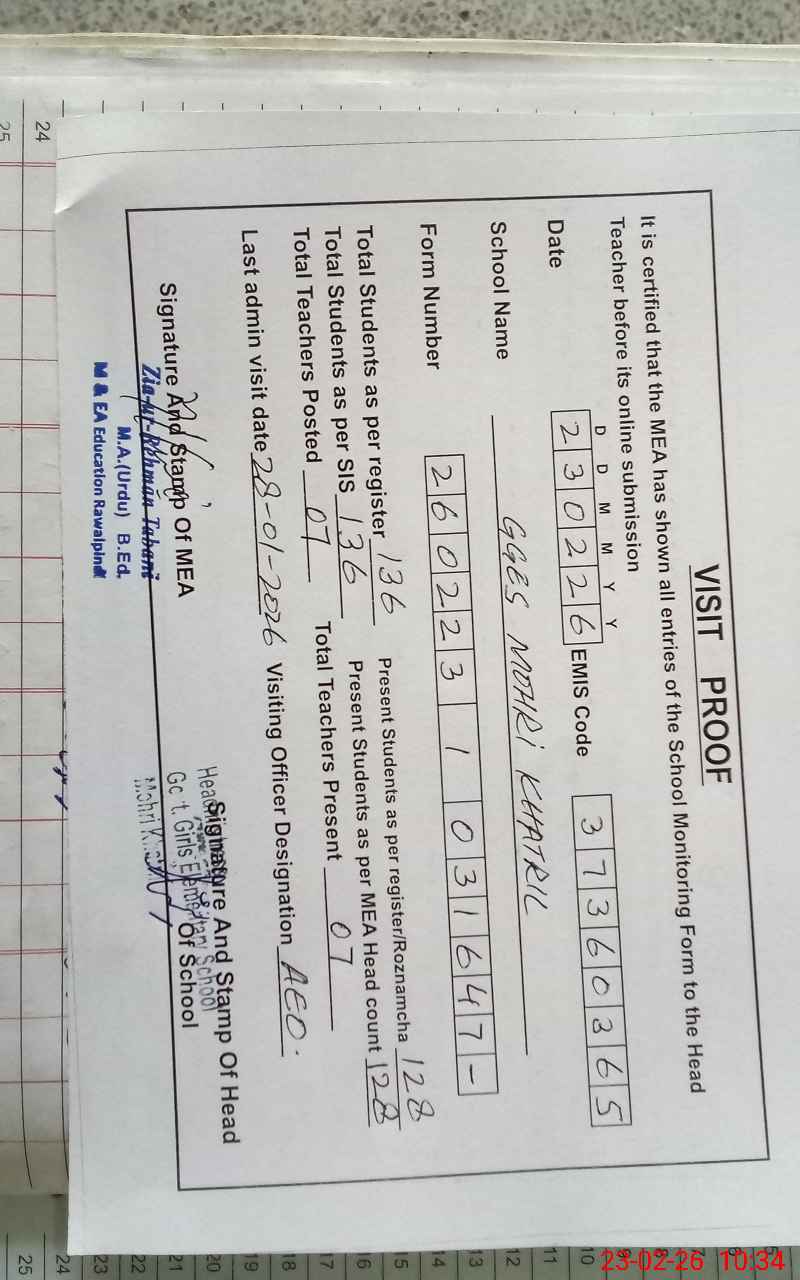 VISIT PROOF
It is certified that the MEA has shown all entries of the School Monitoring Form to the Head
Teacher before its online submission
D D M M Y Y
Date 2 3 0 2 2 6 EMIS Code 3 7 3 6 0 3 6 5
School Name GGES MOHRI KHATRIL
Form Number 2 6 0 2 2 3 1 0 3 1 6 4 7 -
Total Students as per register 136 Present Students as per register/Roznamcha 128
Total Students as per SIS 136 Present Students as per MEA Head count 128
Total Teachers Posted 07 Total Teachers Present 07
Last admin visit date 28-01-2026 Visiting Officer Designation AEO.
Signature And Stamp Of MEA
Zia-ur-Rehman Tabani
M.A.(Urdu) B.Ed.
M & EA Education Rawalpindi
Signature And Stamp Of Head
Of School
Girls Elementary School
Mohri
24
25
5
6
7
8
9
10
11
12
13
14
15
16
17
18
19
20
21
22
23
24
25
23-02-26 10:34